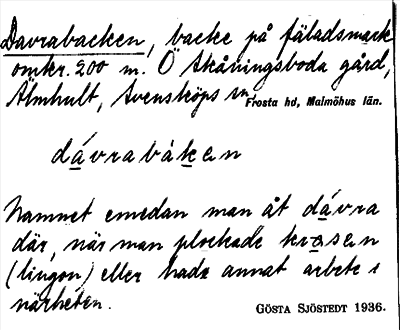 Davrabacken, backe på fäladsmark
omkr. 200 m. Ö Skåningsboda gård,
Älmhult, Svensköps sn, Frosta hd, Malmöhus län.
dávrabákan
Namnet emedan man åt dávra
där, när man plockade krøsen
(lingon) eller hade annat arbete i
närheten.
GÖSTA SJÖSTEDT 1936.